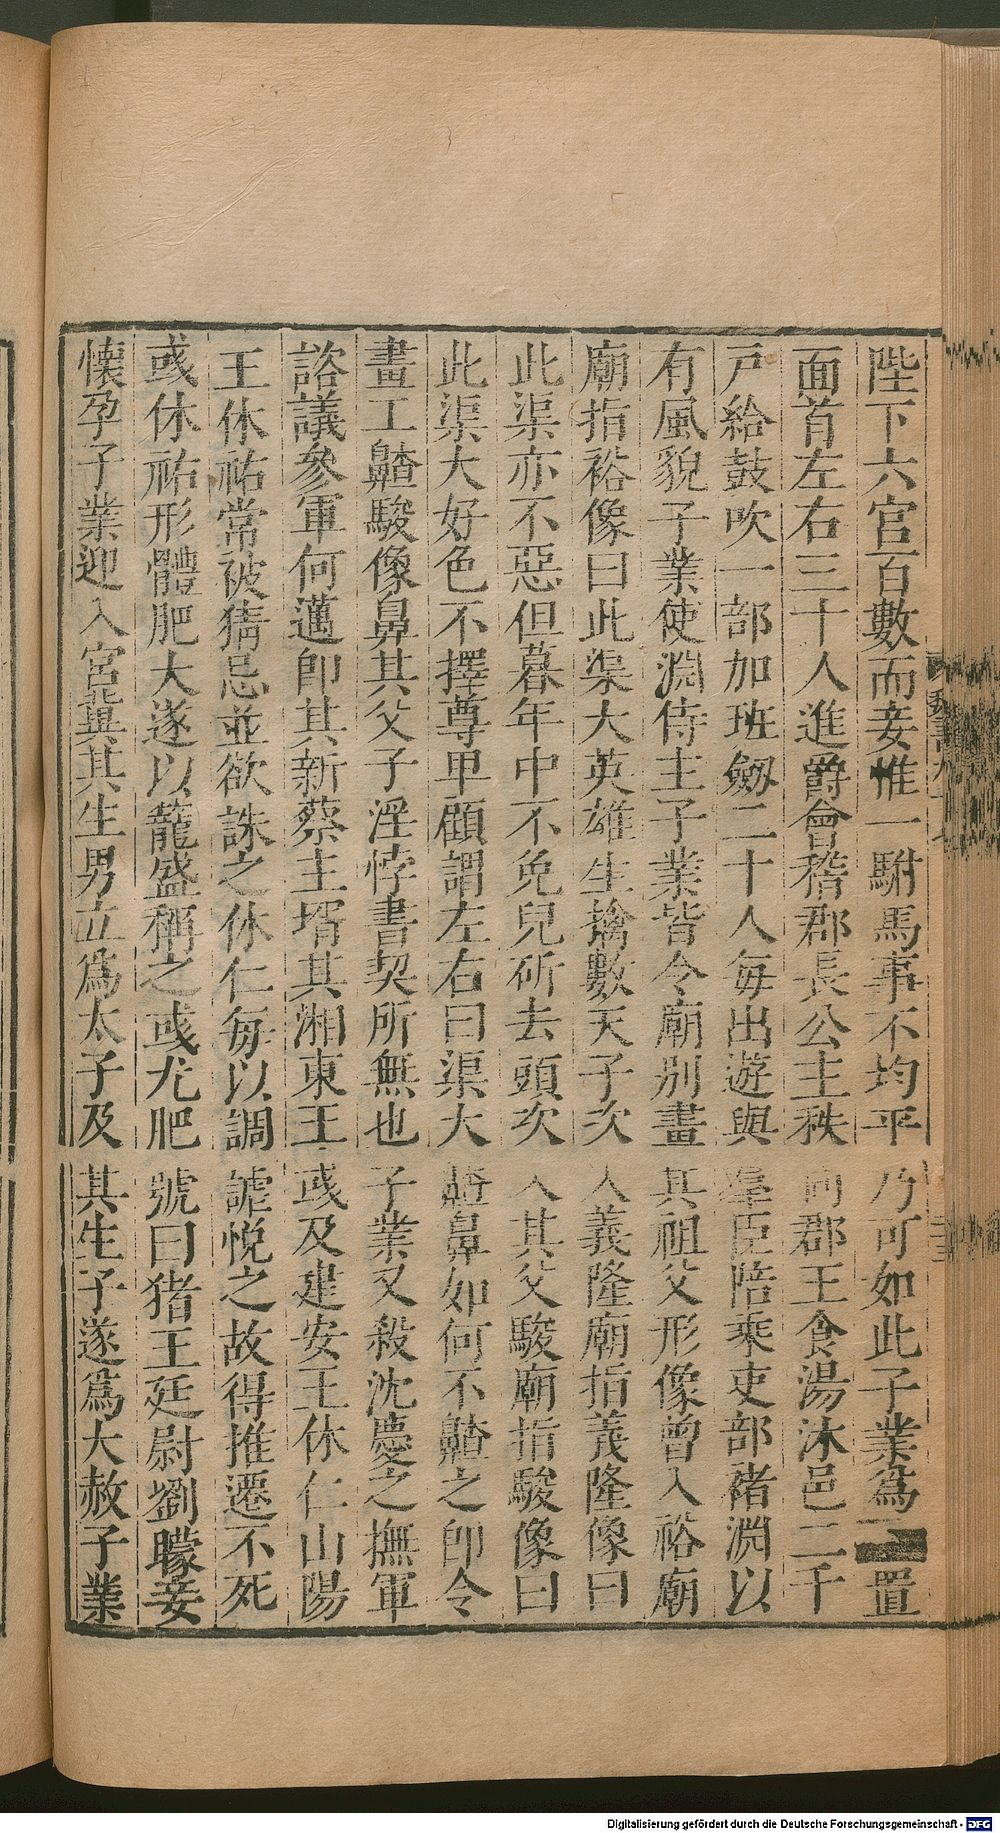 陛下六宮百數而妾惟一駙馬事不均平乃可如此子業爲置
面首左右三十人進爵會稽郡長公主秩同郡王食湯沐邑二千
戸給鼓吹一部加班劔二十人每出遊與羣臣陪乘吏部褚淵以
有風貌子業使淵侍主子業皆令廟別畫其祖父形像曾入裕廟
廟指裕像曰此渠大英雄生擒數天子次入義隆廟指義隆像曰
此渠亦不惡但暮年中不免兒斫去頭次入其父駿廟指駿像曰
此渠大好色不擇尊卑顧謂左右曰渠大齇鼻如何不齇之卽令
畫工齇駿像鼻其父子淫悖書契所無也子業又殺沈慶之撫軍
諮議參軍何邁卽其新蔡主壻其湘東王彧及建安王休仁山陽
王休祐常被猜忌並欲誅之休仁每以調謔悅之故得推遷不死
彧休祐形體肥大遂以籠盛稱之彧尤肥號曰猪王廷尉劉矇妾
懷孕子業迎入宮冀其生男立爲太子及其生子遂爲大赦子業
Digitalisierung gefördert durch die Deutsche Forschungsgemeinschaft - DFG